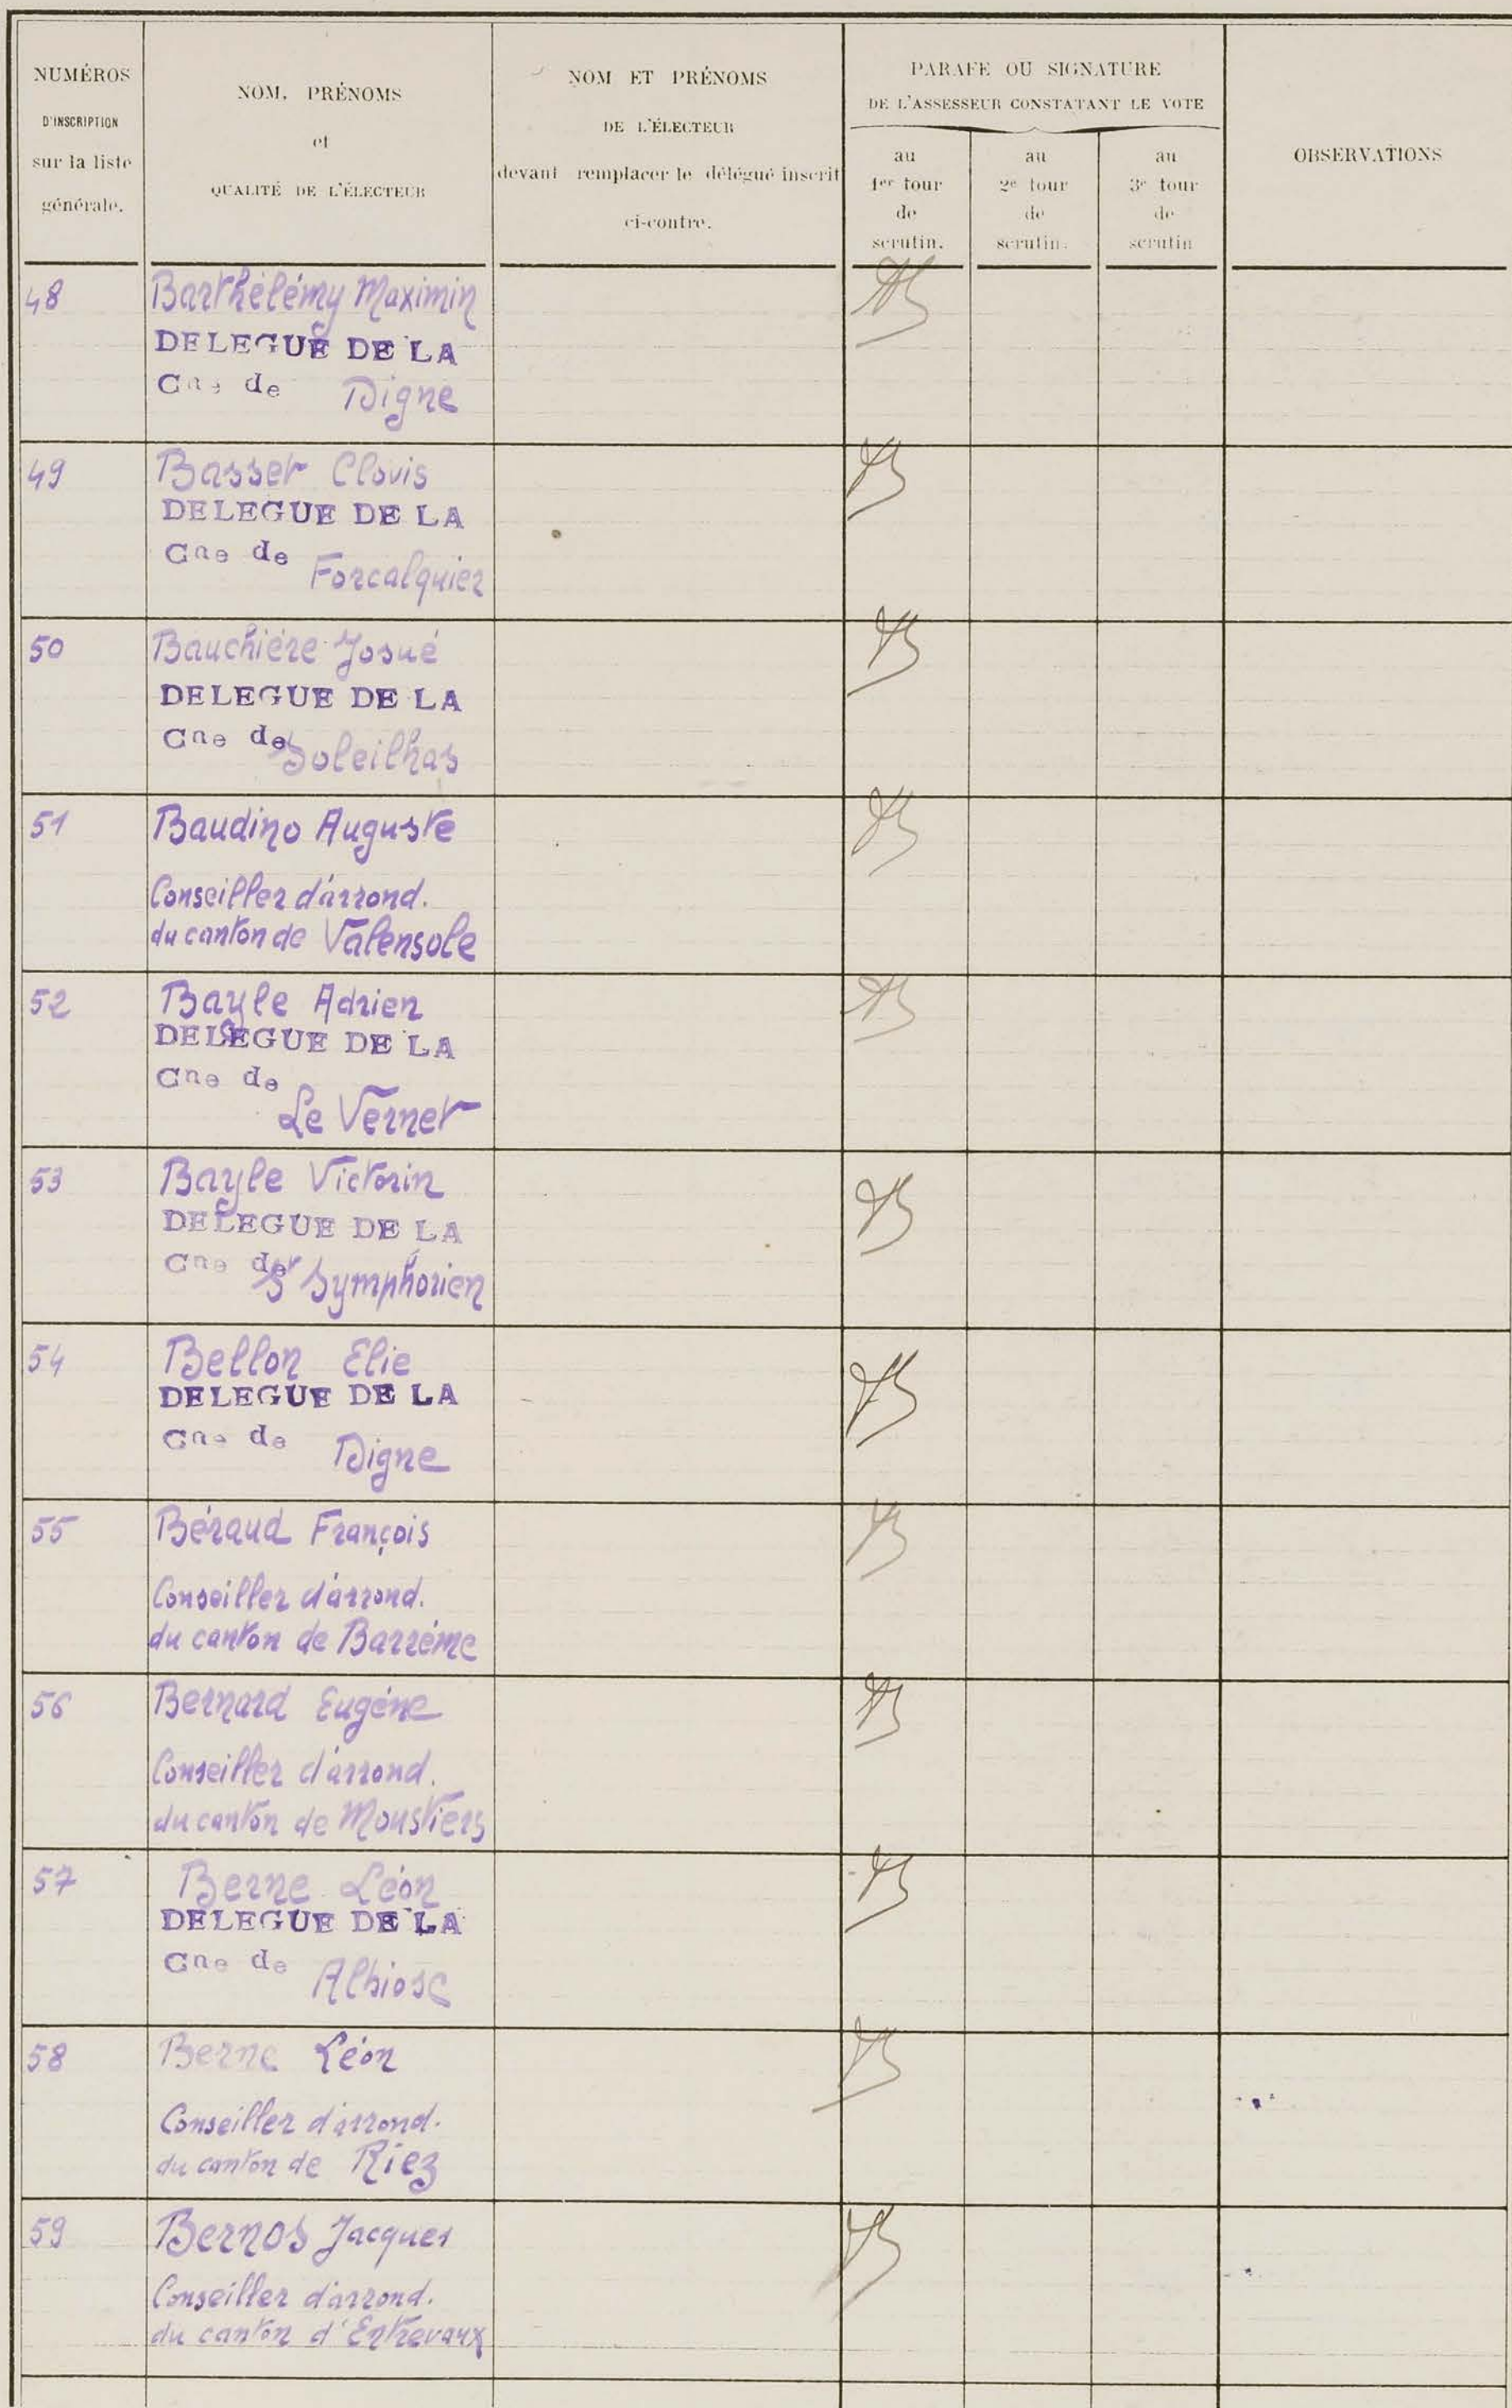 NUMÉROS
D'INSCRIPTION
sur la liste
générale.
NOM, PRÉNOMS
et
QUALITÉ DE L'ÉLECTEUR
NOM ET PRÉNOMS
DE L'ÉLECTEUR
devant remplacer le délégué inscrit
ci-contre.
PARAFE OU SIGNATURE
DE L'ASSESSEUR CONSTATANT LE VOTE
au
1er tour
de
scrutin.
au
2e tour
de
scrutin.
au
3e tour
de
scrutin
OBSERVATIONS
48
Barthélémy Maximin
DELEGUE DE LA
Cne de Digne
49
Basset Clovis
DELEGUE DE LA
Cne de Forcalquier
50
Bauchière Josué
DELEGUE DE LA
Cne de Soleilhas
51
Baudino Auguste
Conseiller d'arrond.
du canton de Valensole
52
Bayle Adrien
DELEGUE DE LA
Cne de
Le Vernet
53
Bayle Victorin
DELEGUE DE LA
Cne de St Symphorien
54
Bellon Elie
DELEGUE DE LA
Cne de Digne
55
Béraud François
Conseiller d'arrond.
du canton de Barrême
56
Bernard Eugène
Conseiller d'arrond.
du canton de Moustiers
57
Berne Léon
DELEGUE DE LA
Cne de Albiosc
58
Berne Léon
Conseiller d'arrond.
du canton de Riez
59
Bernos Jacques
Conseiller d'arrond.
du canton d'Entrevaux